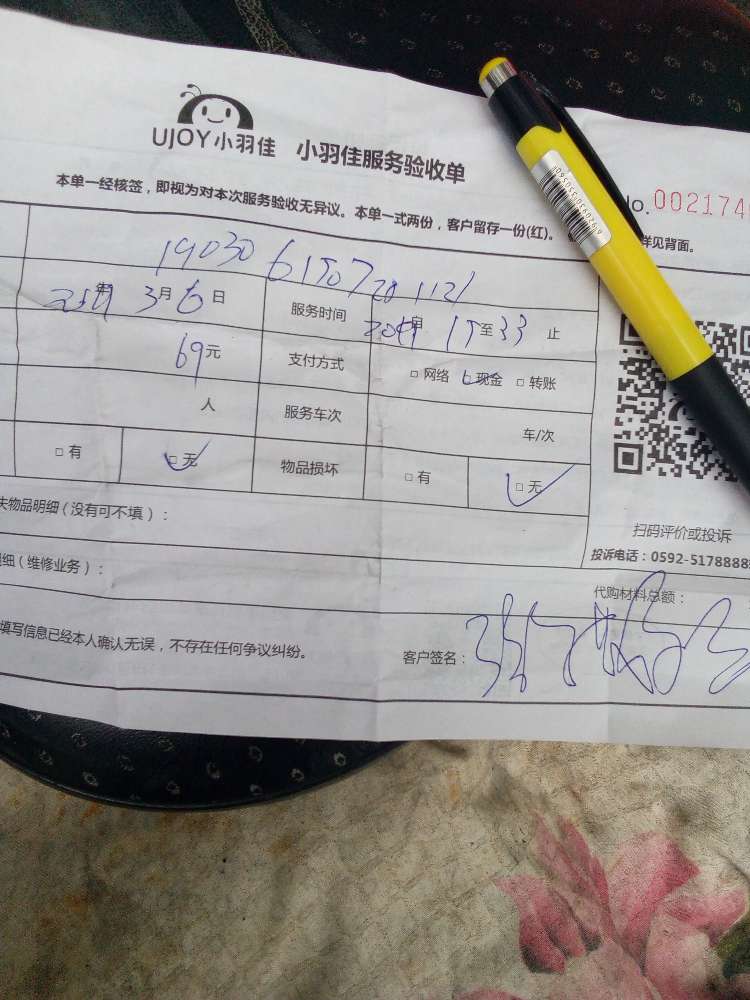 UJOY小羽佳 小羽佳服务验收单
No. 002174
本单一经核签，即视为对本次服务验收无异议。本单一式两份，客户留存一份(红)。
详见背面。
19030 6150720112
年 3月6日 服务时间 至 33 止
69元 支付方式 □ 网络 □ 现金 □ 转账
人 服务车次 车/次
□ 有 □ 无 物品损坏 □ 有 □ 无
失物品明细（没有可不填）：
扫码评价或投诉
投诉电话：0592-5178888
细（维修业务）：
代购材料总额：
填写信息已经本人确认无误，不存在任何争议纠纷。
客户签名：